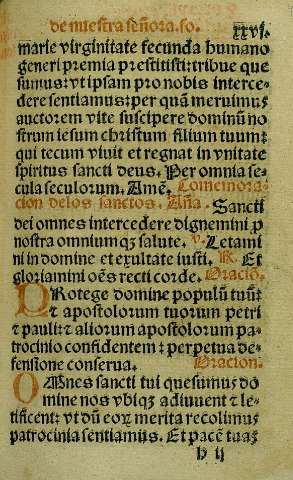 de nuestra señora. fo. xxvi.
marie virginitate fecunda humano
generi premia prestitisti: tribue que
sumus: vt ipsam pro nobis interce-
dere sentiamus: per quã meruimus
auctorem vite suscipere dominũ no
strum iesum christum filium tuum:
qui tecum viuit et regnat in vnitate
spiritus sancti deus. Per omnia se-
cula seculorum. Amẽ. Comemora-
cion delos sanctos. Aña. Sancti
dei omnes intercedere dignemini ꝓ
nostra omnium qꝫ salute. v. Letami
ni in domine et exultate iusti. R. Et
gloriamini oẽs recti corde. Oracio.
PRotege domine populũ tuũ:
et apostolorum tuorum petri
et pauli: et aliorum apostolorum pa-
trocinio confidentem: perpetua de-
fensione conserua. Oracion.
OMnes sancti tui quesumus do
mine nos vbiqꝫ adiuuent et le-
tificent: vt dũ eoꝝ merita recolimus
patrocinia sentiamus. Et pacẽ tuaꝫ
h ij